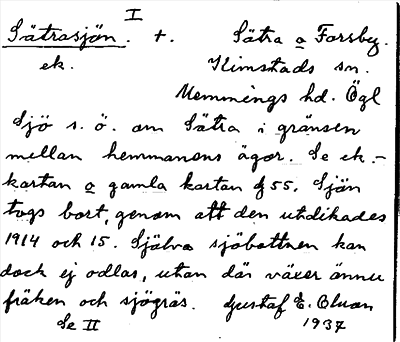 I
Sätrasjön. +. Sätra o Forsby.
ek. Kimstads sn.
Memmings hd. Ögl
Sjö s. ö. om Sätra i gränsen
mellan hemmanens ägor. Se ek.-
kartan o gamla kartan § 55. Sjön
togs bort, genom att den utdikades
1914 och 15. Själva sjöbottnen kan
dock ej odlas, utan där växer ännu
fräken och sjögräs. Gustaf E.
Se II 1937